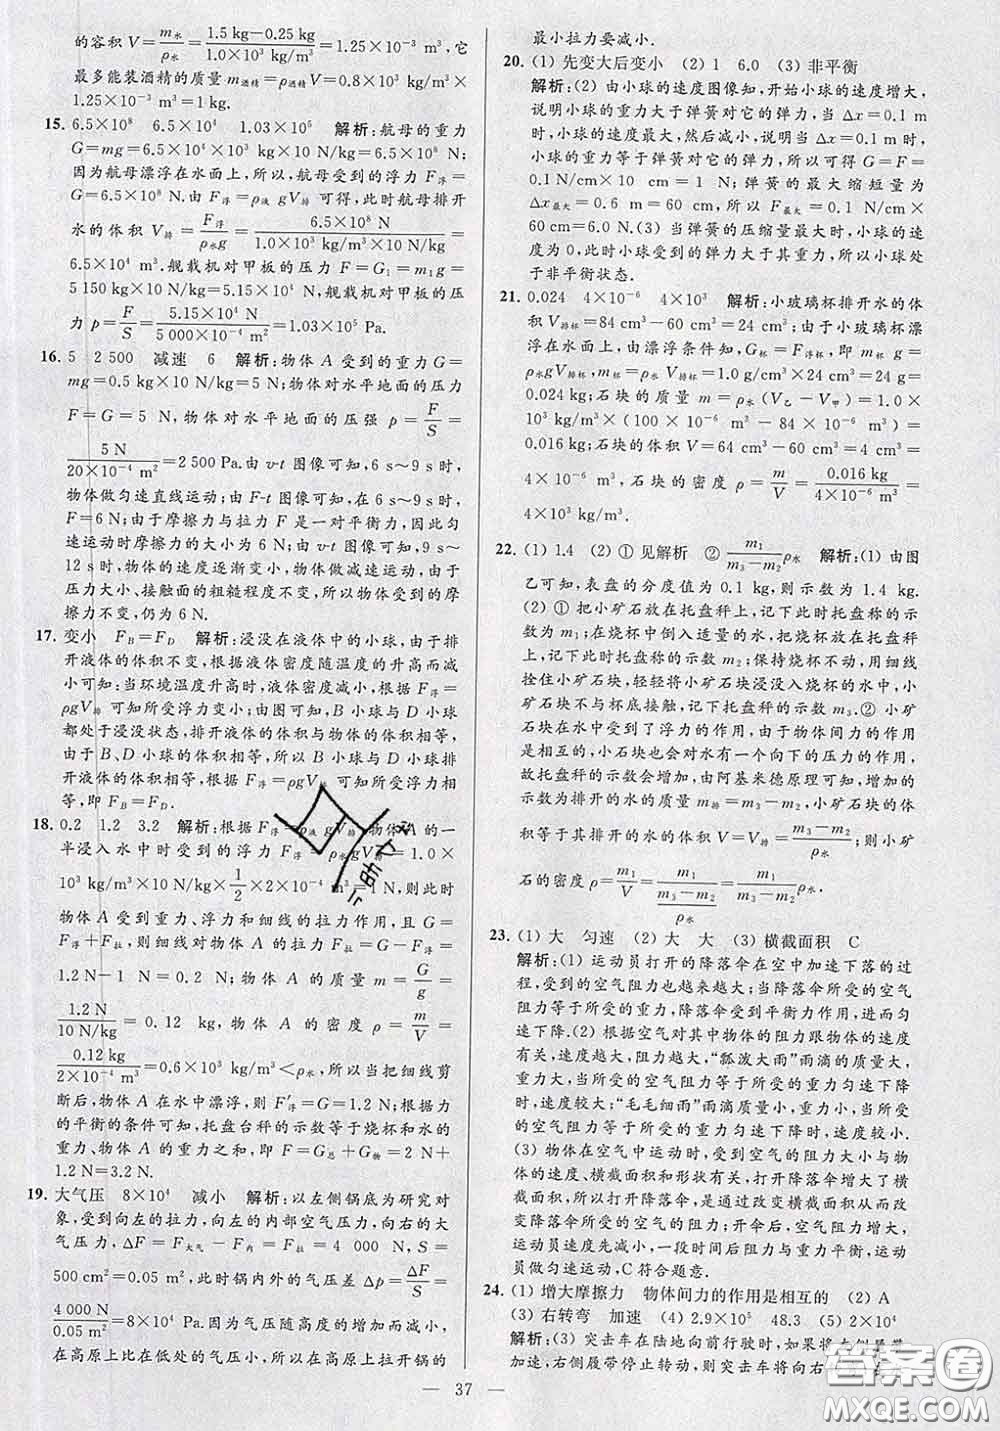 的容积 V=m水/ρ水=(1.5 kg-0.25 kg)/(1.0×10³ kg/m³)=1.25×10⁻³ m³,它
最多能装酒精的质量 m酒精=ρ酒精V=0.8×10³ kg/m³×
1.25×10⁻³ m³=1 kg.
15. 6.5×10⁸ 6.5×10⁴ 1.03×10⁵ 解析:航母的重力
G=mg=6.5×10⁴×10³ kg×10 N/kg=6.5×10⁸ N;
因为航母漂浮在水面上,所以,航母受到的浮力 F浮=
G=6.5×10⁸ N,由 F浮=ρ液 gV排 可得,此时航母排开
水的体积 V排=F浮/ρ水g=6.5×10⁸ N/(1.0×10³ kg/m³×10 N/kg)=
6.5×10⁴ m³.舰载机对甲板的压力 F=G₁=m₁g=
5 150 kg×10 N/kg=5.15×10⁴ N,舰载机对甲板的压
力 p=F/S=5.15×10⁴ N/(5 000×10⁻⁴ m²)=1.03×10⁵ Pa.
16. 5 2 500 减速 6 解析:物体 A 受到的重力 G=
mg=0.5 kg×10 N/kg=5 N;物体对水平地面的压力
F=G=5 N,物体对水平地面的压强 p=F/S=
5 N/(20×10⁻⁴ m²)=2 500 Pa.由 v-t 图像可知,6 s~9 s时,
物体做匀速直线运动;由 F-t 图像可知,在 6 s~9 s
时;由于摩擦力与拉力 F 是一对平衡力,因此匀
速运动时摩擦力的大小为 6 N;由 v-t 图像可知,9 s~
12 s时,物体的速度逐渐变小,物体做减速运动,由于
压力大小、接触面的粗糙程度不变,所以物体受到的摩
擦力不变,仍为 6 N.
17. 变小 F_B=F_D 解析:浸没在液体中的小球,由于排
开液体的体积不变,根据液体密度随温度的升高而减
小可知:当环境温度升高时,液体密度减小,根据 F浮=
ρgV排 可知所受浮力变小;由图可知,B 小球与 D 小球
都处于浸没状态,排开液体的体积与物体的体积相等,
由于 B、D 小球的体积相等,所以 B 小球与 D 小球排
开液体的体积相等,根据 F浮=ρgV排 可知所受浮力相
等,即 F_B=F_D.
18. 0.2 1.2 3.2 解析:根据 F浮=ρ液 gV排,物体A的一
半浸入水中时受到的浮力 F浮=ρ水gV排=1.0×
10³ kg/m³×10 N/kg×1/2×2×10⁻⁴ m³=1 N,则此时
物体 A 受到重力、浮力和细线的拉力作用,且 G=
F浮+F拉,则细线对物体 A 的拉力 F拉=G-F浮=
1.2 N-1 N=0.2 N;物体 A 的质量 m=G/g=
1.2 N/(10 N/kg)=0.12 kg,物体 A 的密度 ρ=m/V=
0.12 kg/(2×10⁻⁴ m³)=0.6×10³ kg/m³<ρ水,所以当把细线剪
断后,物体 A 在水中漂浮,则 F′浮=G=1.2 N;根据力
的平衡的条件可知,托盘台秤的示数等于烧杯和水的
重力、物体 A 的重力之和,即 F=G总+G物=2 N+
1.2 N=3.2 N.
19. 大气压 8×10⁴ 减小 解析:以左侧锅底为研究对
象,受到向左的拉力,向左的内部空气压力,向右的大
气压力,ΔF=F大气-F内=F拉=4 000 N,S=
500 cm²=0.05 m²,此时锅内外的气压差 Δp=ΔF/S=
4 000 N/0.05 m²=8×10⁴ Pa.因为气压随高度的增加而减小,
在高原上比在低处的气压小,所以在高原上拉开锅的
最小拉力要减小.
20. (1) 先变大后变小 (2) 1 6.0 (3) 非平衡
解析:(2) 由小球的速度图像知,开始小球的速度增大,
说明小球的重力大于弹簧对它的弹力,当 Δx=0.1 m
时,小球的速度最大,然后减小,说明当 Δx=0.1 m时,
小球的重力等于弹簧对它的弹力,所以可得 G=F=
0.1 N/cm×10 cm=1 N;弹簧的最大缩短量为
Δx最大=0.6 m=60 cm,所以 F最大=0.1 N/cm
×60 cm=6.0 N.(3) 当弹簧的压缩量最大时,小球的速
度为 0,此时小球受到的弹力大于其重力,所以小球处
于非平衡状态.
21. 0.024 4×10⁻⁶ 4×10³ 解析:小玻璃杯排开水的体
积 V排杯=84 cm³-60 cm³=24 cm³;由于小玻璃杯漂
浮在水面上,由漂浮条件知,G杯=F浮杯,即 m杯 g=
ρ水gV排杯,m杯=ρ水 V排杯=1.0 g/cm³×24 cm³=24 g=
0.024 kg;石块的质量 m=ρ水(V乙-V甲)=1.0×
10³ kg/m³×(100×10⁻⁶ m³-84×10⁻⁶ m³)=
0.016 kg;石块的体积 V=64 cm³-60 cm³=4 cm³=
4×10⁻⁶ m³,石块的密度 ρ=m/V=0.016 kg/(4×10⁻⁶ m³)=
4×10³ kg/m³.
22. (1) 1.4 (2) ① 见解析 ② m₁/(m₃-m₂)ρ水 解析:(1) 由图
乙可知,表盘的分度值为 0.1 kg,则示数为 1.4 kg.
(2) ① 把小矿石放在托盘秤上,记下此时托盘称的示
数为 m₁;在烧杯中倒入适量的水,把烧杯放在托盘秤
上,记下此时托盘称的示数 m₂;保持烧杯不动,用细线
拴住小矿石块,轻轻将小矿石块浸没入烧杯的水中,小
矿石块不与杯底接触,记下托盘秤的示数 m₃.② 小矿
石块在水中受到了浮力的作用,由于物体间力的作用
是相互的,小石块也会对水有一个向下的压力的作用,
故托盘秤的示数会增加,由阿基米德原理可知,增加的
示数为排开的水的质量 m排=m₃-m₂,小矿石块的体
积等于其排开的水的体积 V=V排=(m₃-m₂)/ρ水;则小矿
石的密度 ρ=m₁/V=m₁/((m₃-m₂)/ρ水)=m₁/(m₃-m₂)ρ水.
23. (1) 大 匀速 (2) 大 大 (3) 横截面积 C
解析:(1) 运动员打开的降落伞在空中加速下落的过
程,受到的空气阻力也越来越大;当降落伞所受的空气
阻力等于所受的重力,降落伞受到平衡力作用,进而匀
速下降.(2) 根据空气对其中物体的阻力跟物体的速度
有关,速度越大,阻力越大,“瓢泼大雨”雨滴的质量大,
重力大,当所受的空气阻力等于所受的重力匀速下降
时,速度较大;“毛毛细雨”雨滴质量小,重力小,当所受
的空气阻力等于所受的重力匀速下降时,速度较小.
(3) 物体在空气中运动时,受到的空气阻力大小与物体
的速度、横截面积和形状有关,且横截面积越大,空气
阻力越大,所以降落伞是通过改变横截面积从而改
变降落伞所受的空气的阻力;开伞后,空气阻力增大,
运动员速度先减小,一段时间后阻力与重力平衡,运动
员做匀速运动,C 符合题意.
24. (1) 增大摩擦力 物体间力的作用是相互的 (2) A
(3) 右转弯 加速 (4) 2.9×10⁵ 48.3 (5) 2×10⁴
解析:(3) 突击车在陆地向前行驶时,如果将左侧履带
加速,右侧履带停止转动,则突击车将向右
— 37 —
答案圈
MXQE.COM